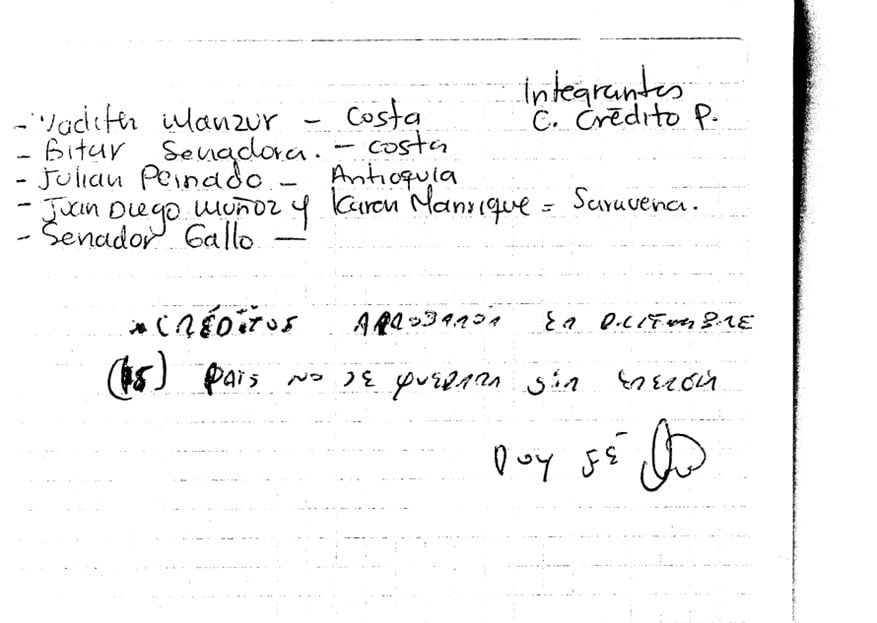 Integrantes
C. Crédito P.
- Wadith Manzur - Costa
- Bitar Senadora. - costa
- Julian Peinado - Antioquia
- Juan Diego Muñoz y Karen Manrique = Saravena.
- Senador Gallo -
* CRÉDITOS APROBARON En DICIEMBRE
(15) PAIS NO SE QUEDARA Sin EnERGIA
DOY FÉ